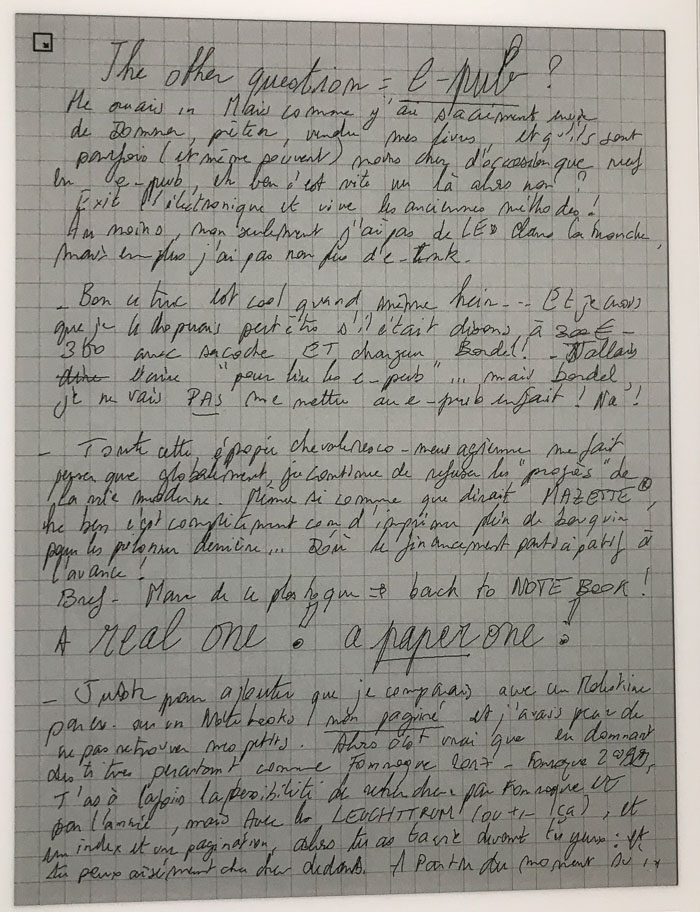 The other question = e-pub ?
He ouais Mais comme j'ai sacrément envie
de Donner, prêter, vendre mes livres, et qu'ils sont
parfois (et même souvent) moins cher d'occasion que neuf
en e-pub, eh ben c'est vite vu là alors non ?
Exit l'électronique et vive les anciennes méthodes !
Au moins, non seulement j'ai pas de LED dans la tronche,
mais en plus j'ai pas non plus d'e-Ink.
- Bon ce truc est cool quand même hein... Et je crois
que je le peut être s'il était disons à 300€ -
350 avec sacoche, ET chargeur Bordel ! - J'allais
dire écrire "pour lire les e-pub"... mais bordel,
je ne vais PAS me mettre au e-pub enfait ! Na !
- Toute cette épopée chevaleresco - me fait
penser que globalement, je continue de refuser les "progrès" de
la vie moderne. Même si comme que dirait MAZETTE,
he ben c'est complètement con d'imprimer plein de bouquin
pour les derrière... D'où le financement participatif à
l'avance !
Bref - Marre de ce plastoque => back to NOTE BOOK !
A real one ! a paper one !
- Juste pour ajouter que je comparais avec un Moleskine
ou un Notebooks non paginé et j'avais peur de
ne pas retrouver mes petits. Alors c'est vrai que en donnant
des titres percutant comme Fonroque 2017 - Fonroque
T'as à la fois la possibilité de rechercher par Fonroque ou
par l'année, mais Avec les LEUCHTTRUM (ou +/- ça), et
un index et une pagination, alors tu as ta vie devant tes yeux : et
tu peux aisément chercher dedans. A Partir du moment